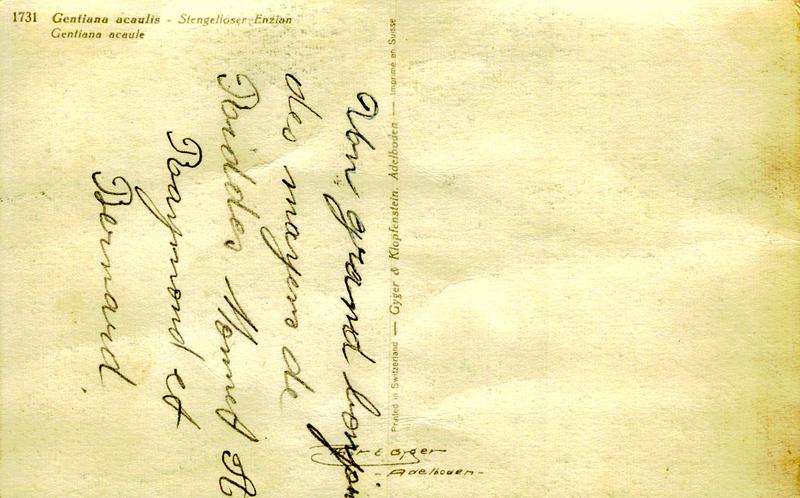 1731 Gentiana acaulis - Stengelloser Enzian
Gentiana acaule
Un grand bonjour
des mayens de
Riddes Monet A
Raymond et
Bernard.
Printed in Switzerland — Gyger & Klopfenstein, Adelboden — Imprimé en Suisse
Gyger
- Adelboden -